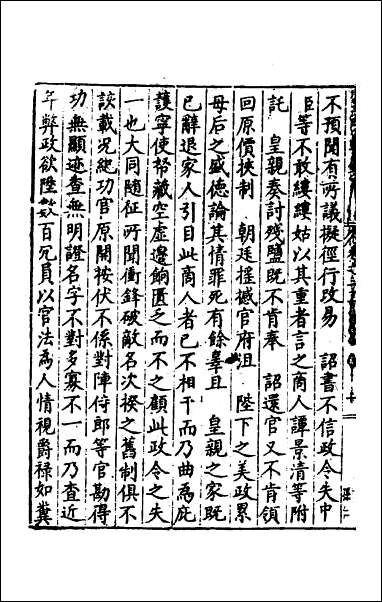 不預聞有所議擬徑行改易　詔書不信政令失中
臣等不敢縷縷姑以其重者言之商人譚景清等附
託　皇親奏討殘鹽既不肯奉　詔還官又不肯領
回原價挾制　朝廷搖撼官府沮　陛下之美政累
母后之盛德論其情罪死有餘辜且　皇親之家既
已辭退家人引目此商人者已不相干而乃曲為庇
護寧使帑藏空虛邊餉匱乏而不之顧此政令之失
一也大同隨征所聞衝鋒破敵名次揆之舊制俱不
該載况緫功官原開按伏不係對陣侍郎等官勘得
功無顯迹查無明證名字不對多寡不一而乃查近
年弊政欲陞數百冗員以官法為人情視爵祿如糞